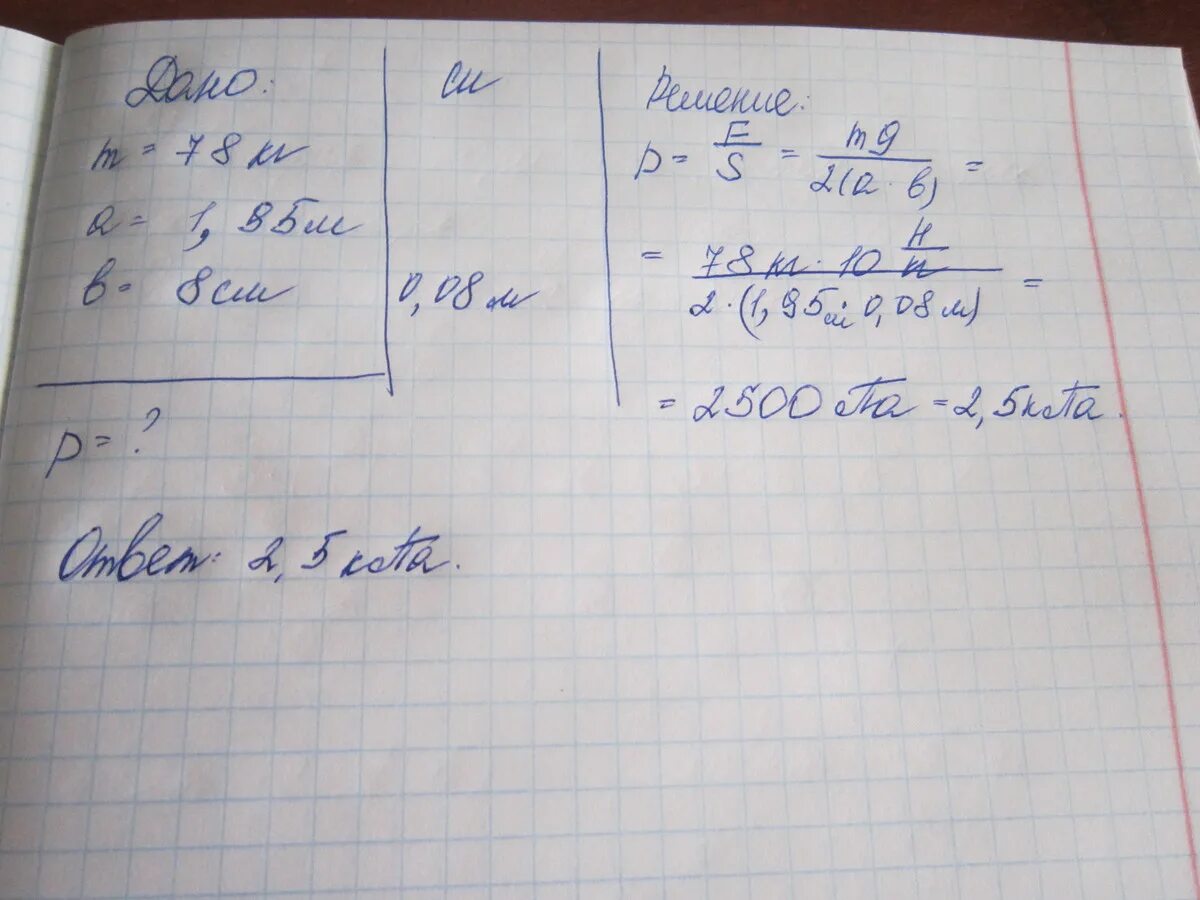 Дано:
m = 78 кг
a = 1,95 м
в = 8 см
р = ?
си
0,08 м
Решение:
р = F/S = mg/2(a · в) =
= 78 кг · 10 Н/кг / 2 · (1,95 м · 0,08 м) =
= 2500 Па = 2,5 кПа.
Ответ: 2,5 кПа.